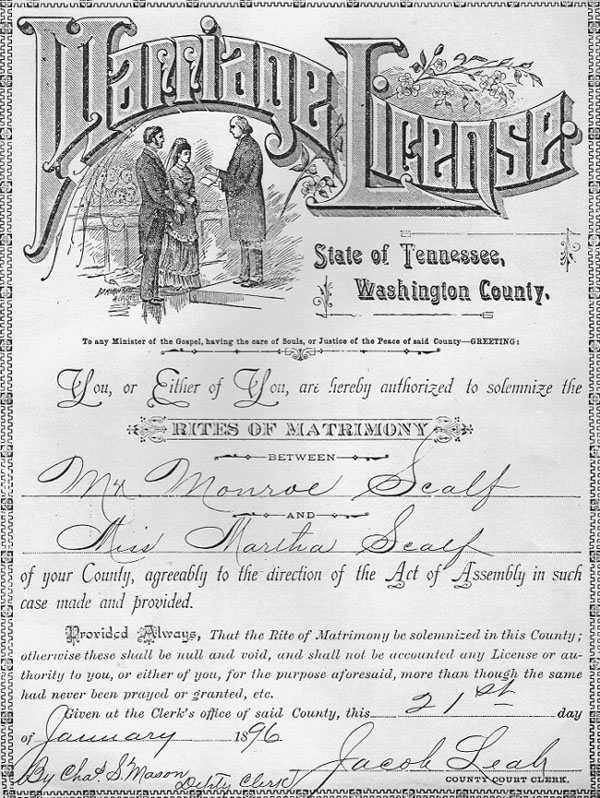 Marriage License.
State of Tennessee,
Washington County.
To any Minister of the Gospel, having the care of Souls, or Justice of the Peace of said County—GREETING:
You, or Either of You, are hereby authorized to solemnize the
RITES OF MATRIMONY
BETWEEN
Mr Monroe Scalf
AND
Miss Martha Scalf
of your County, agreeably to the direction of the Act of Assembly in such
case made and provided.
Provided Always, That the Rite of Matrimony be solemnized in this County;
otherwise these shall be null and void, and shall not be accounted any License or au-
thority to you, or either of you, for the purpose aforesaid, more than though the same
had never been prayed or granted, etc.
Given at the Clerk's office of said County, this 21st day
of January 1896
Jacob Leab
By Chas. S. Mason
Deputy Clerk
COUNTY COURT CLERK.